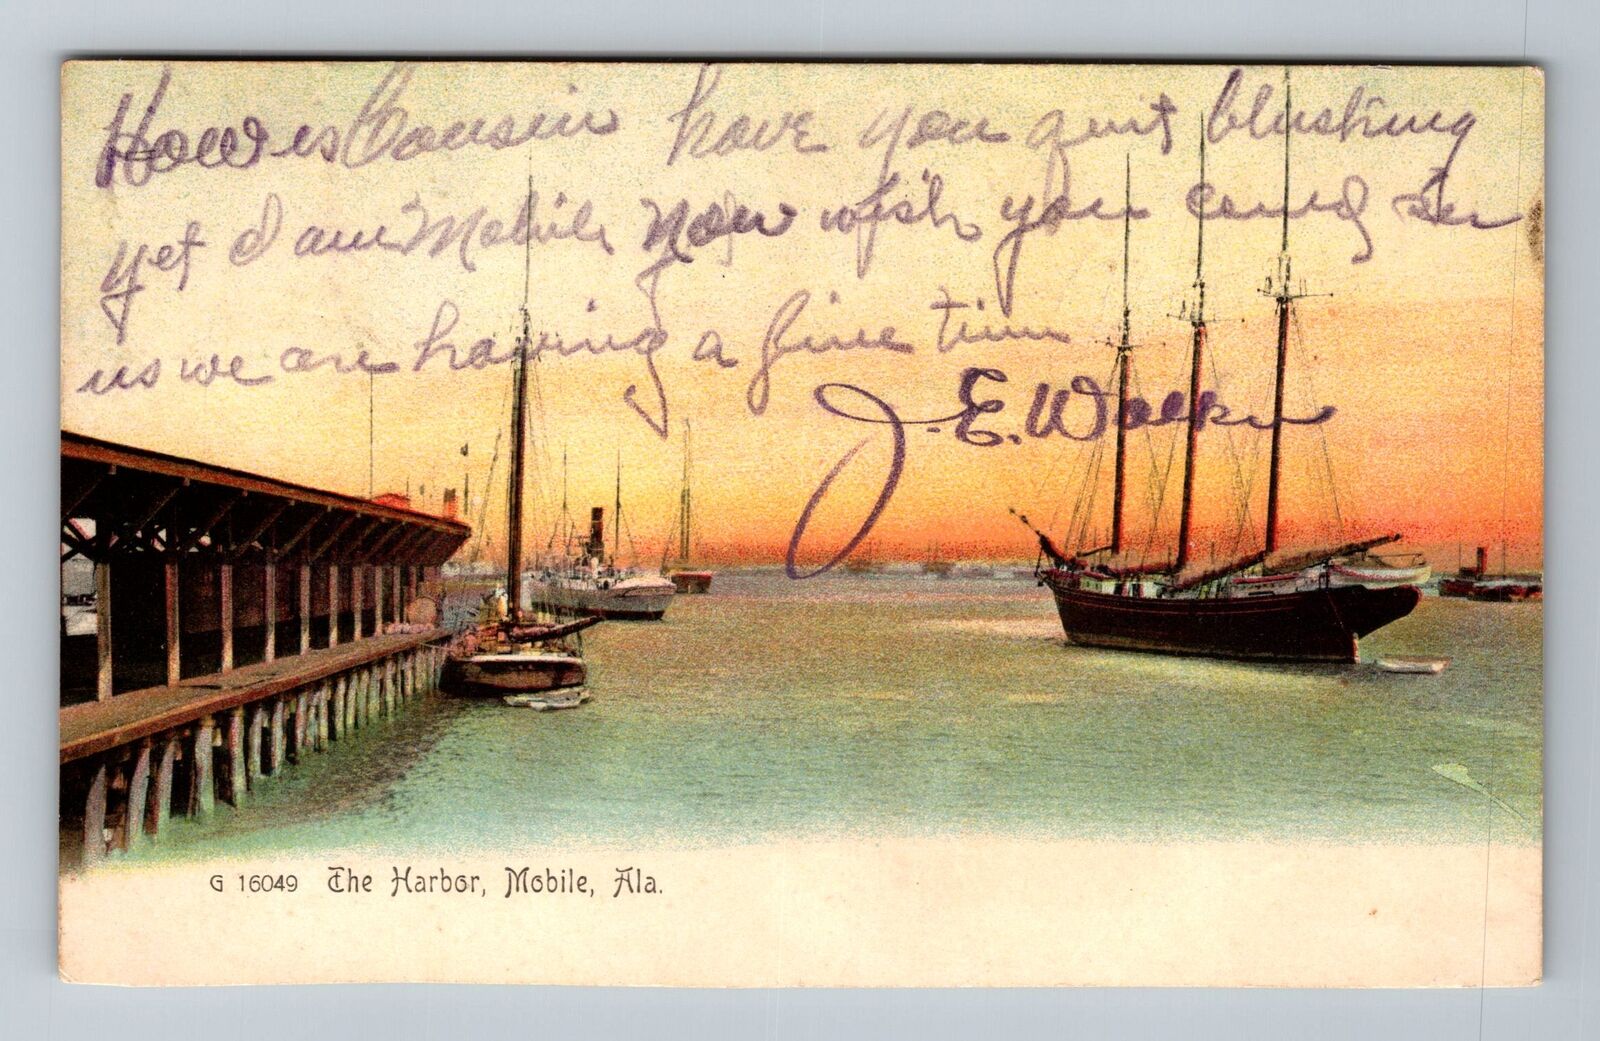 How is Cousin have you quit blushing
yet I am Mobile Now wish you could see
us we are having a fine time
J. E. Walker
G 16049 The Harbor, Mobile, Ala.